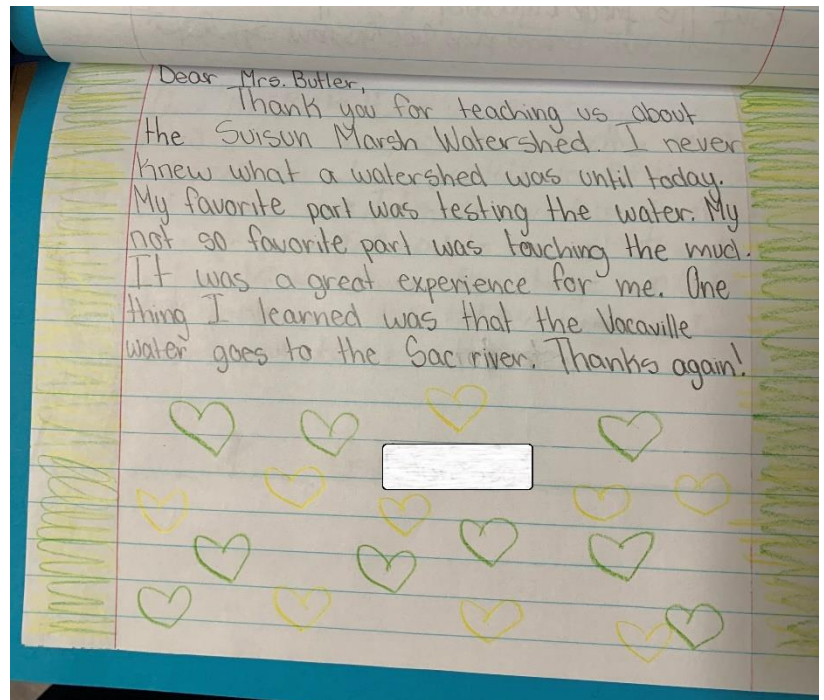 Dear Mrs. Butler,
Thank you for teaching us about
the Suisun Marsh Watershed. I never
knew what a watershed was until today.
My favorite part was testing the water. My
not so favorite part was touching the mud.
It was a great experience for me. One
thing I learned was that the Vacaville
water goes to the Sac river. Thanks again!